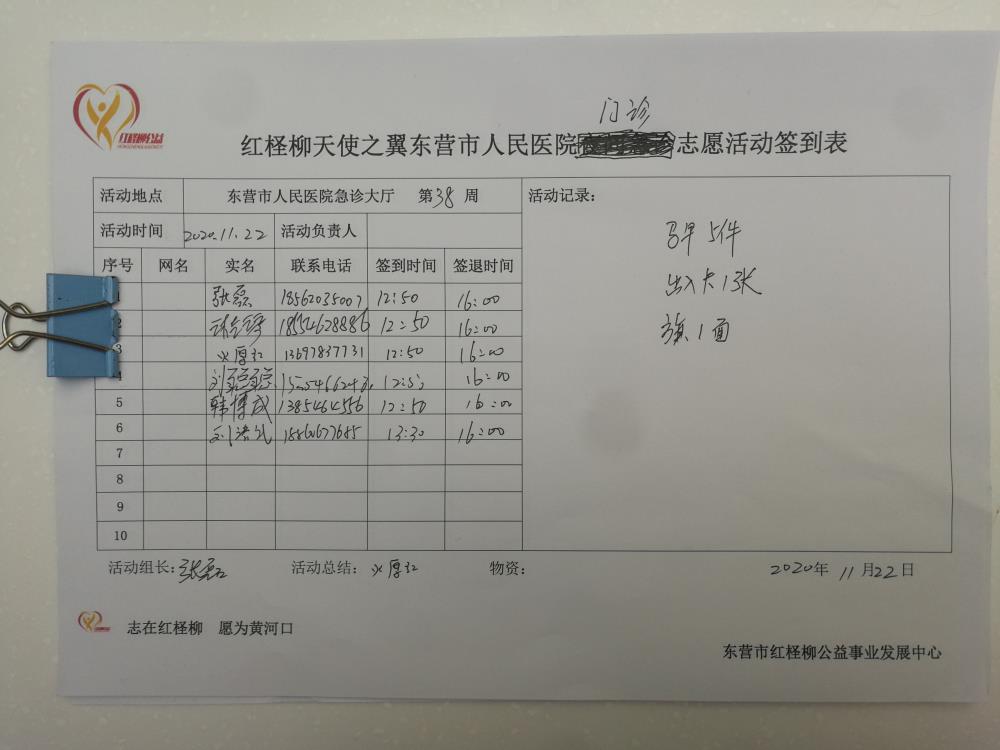 红柽柳公益
门诊
红柽柳天使之翼东营市人民医院志愿活动签到表
活动地点 东营市人民医院急诊大厅 第38周 活动记录:
活动时间 2020.11.22 活动负责人
序号 网名 实名 联系电话 签到时间 签退时间
1 张磊 18562035007 12:50 16:00
2 18554628886 12:50 16:00
3 厚红 13697837731 12:50 16:00
4 刘 16:00
5 韩博成 12:50 16:00
6 刘 18860677685 13:30 16:00
7
8
9
10
5件
出入卡13张
旗1面
活动组长:张磊 活动总结: 厚红 物资: 2020年11月22日
志在红柽柳 愿为黄河口
东营市红柽柳公益事业发展中心